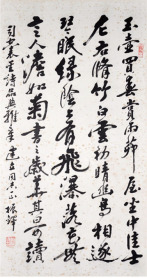 玉壺買春賞雨茆屋坐中佳士
左右脩竹白雲初晴幽鳥相逐
琴眠綠陰上有飛瀑落花無
言人澹如菊書之歲華其曰可讀
司空表聖詩品典雅章